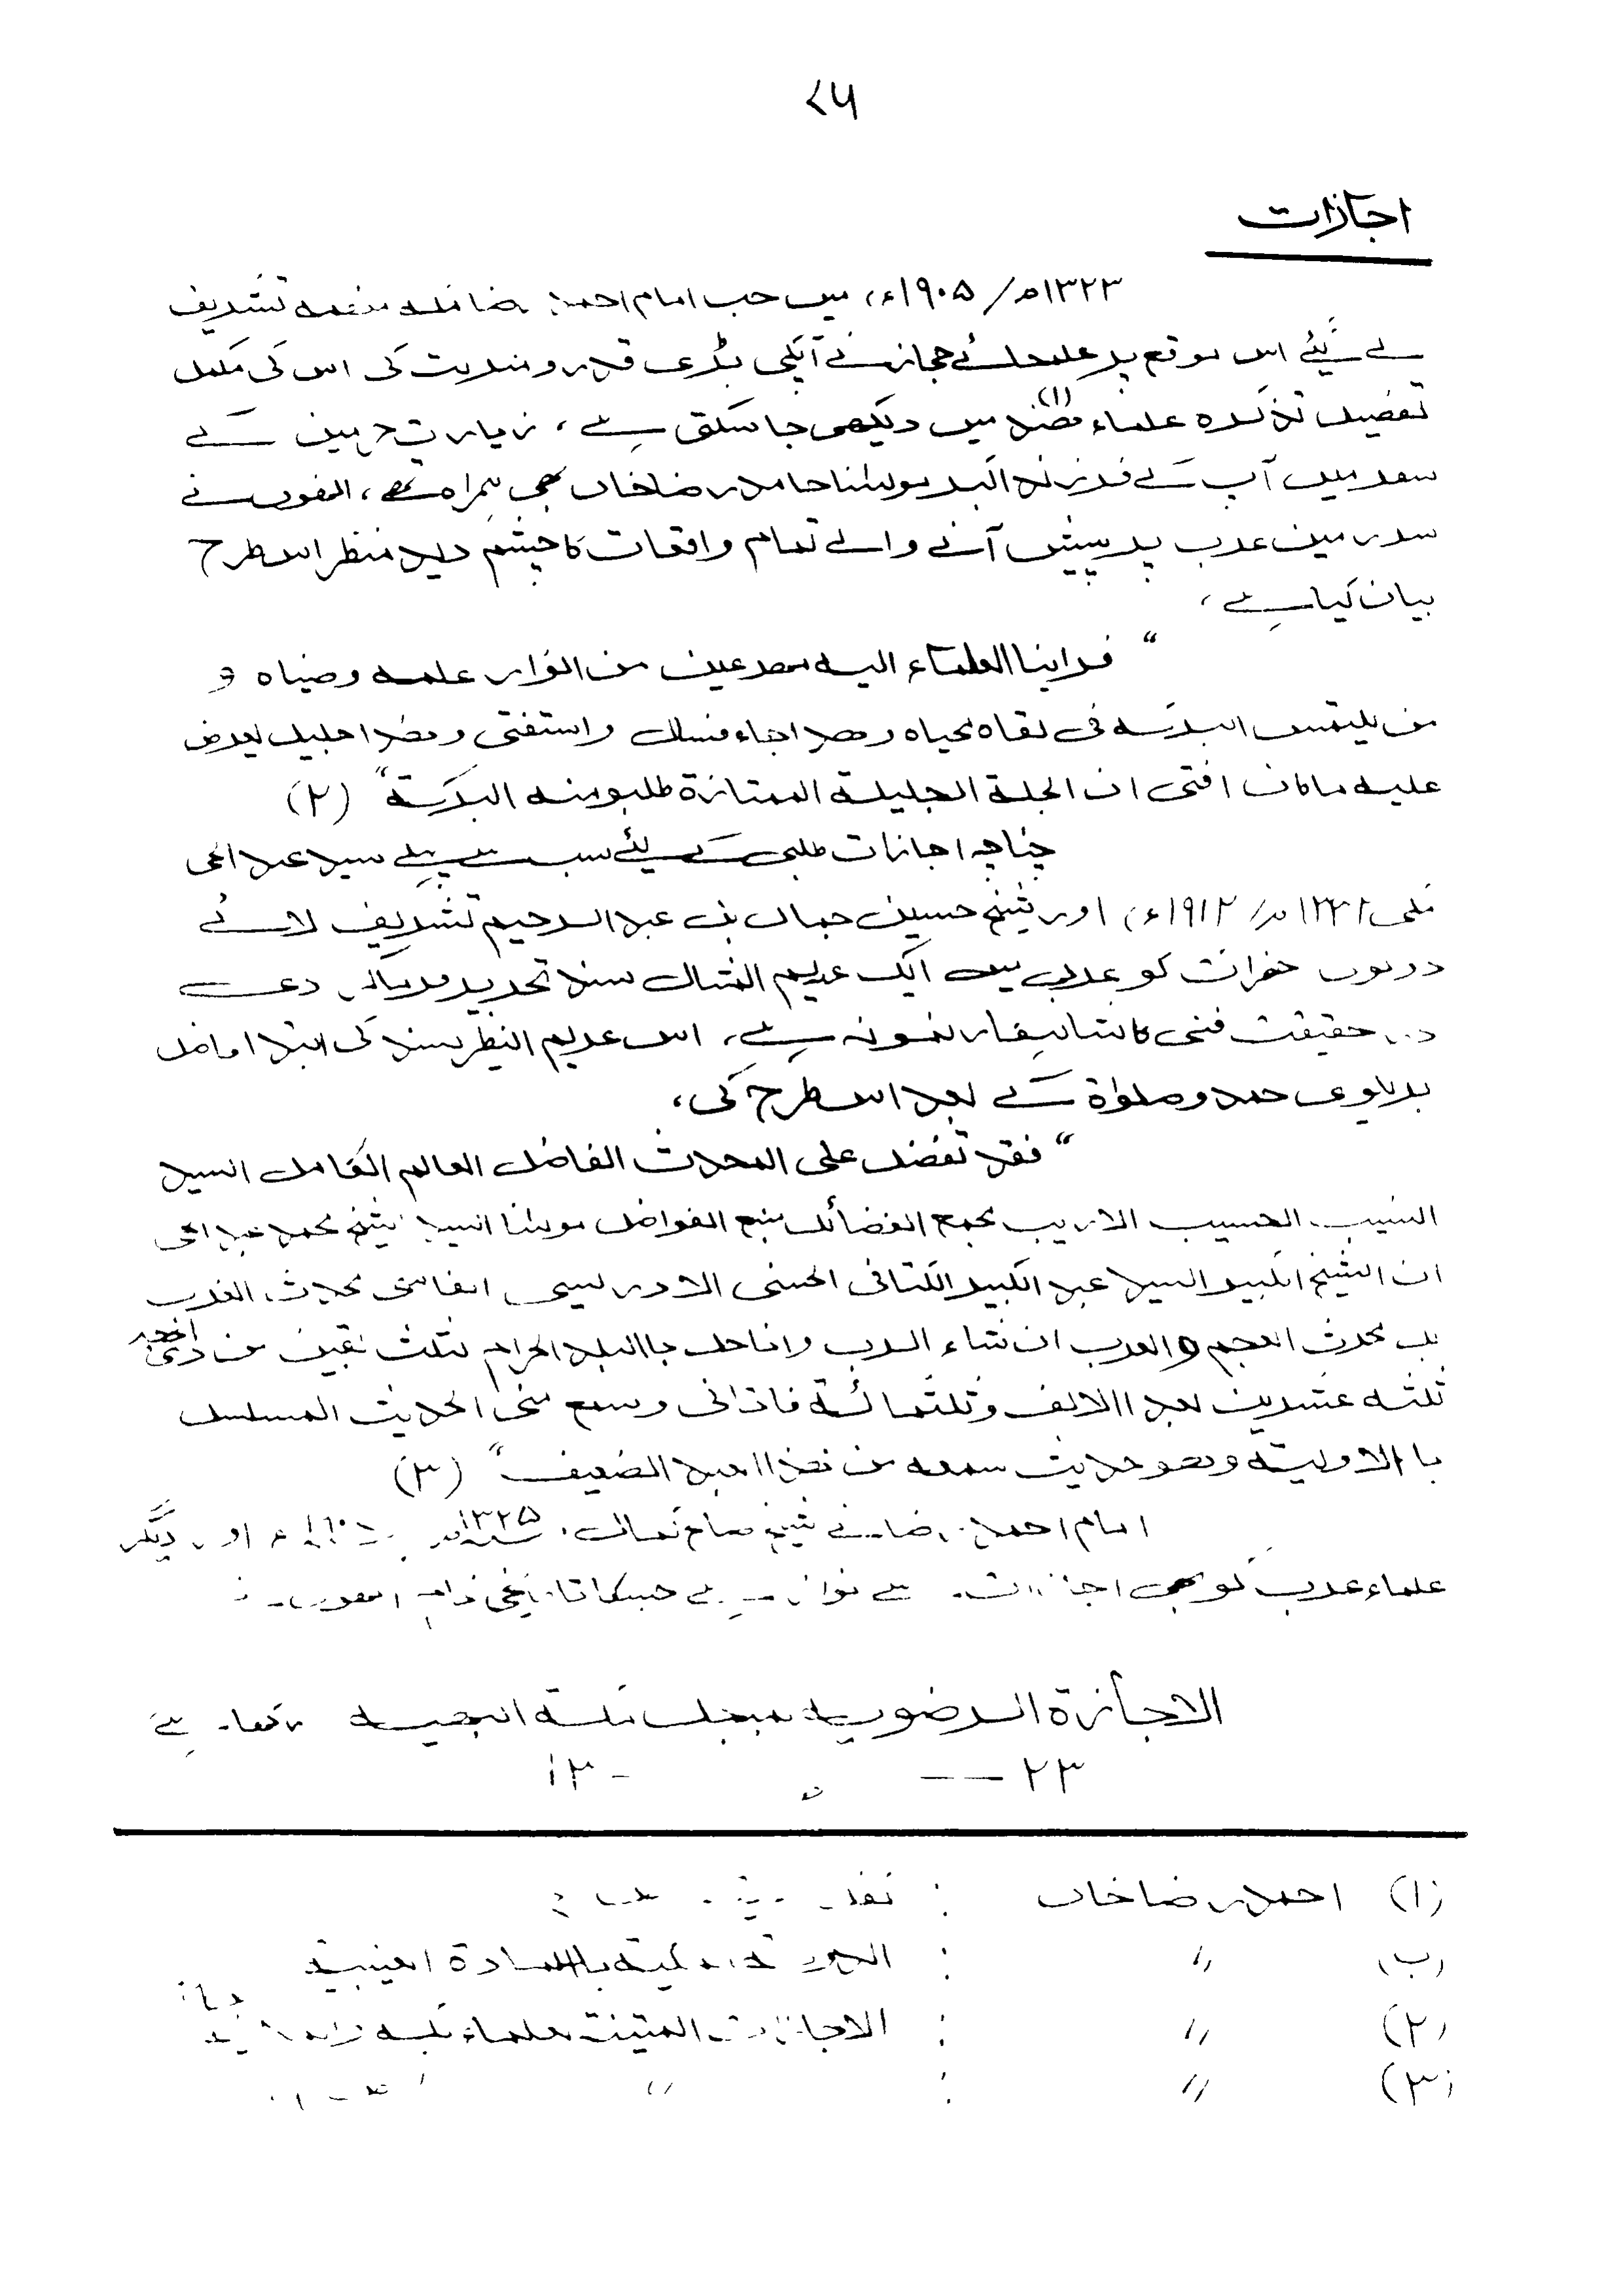 ۷۵
اجازات
۱۳۲۳ھ/ ۱۹۰۵ء، میں جب امام احمد رضا مکہ معظمہ تشریف
لے گئے اس موقع پر علمائے حجاز نے آپکی بڑی قدر و منزلت کی اس کی مکمل
تفصیل تذکرہ علماء ھند(۱) میں دیکھی جا سکتی ہے، زیارت حرمین کے
سفر میں آپ کے فرزند اکبر مولٰنا حامد رضا خاں بھی ہمراہ تھے، انھوں نے
سرزمین عرب پر پیش آنے والے تمام واقعات کا چشم دید منظر اسطرح
بیان کیا ہے،
“ فراینا العلماء الیہ مھرعین من انوار علمہ وضیاہ و
من یلتمس البرکۃ فی لقاہ محیاہ وھذا جاء فسال واستفتی وھذا جلیل یعرض
علیہ ماکان افتی ان الجلۃ الجلیلۃ الممتازۃ طلبو منہ البرکۃ” (۲)
چناچہ اجازات طلبی کے لئے سب سے پہلے سید عبدالحی
مکی ۱۳۳۲ھ/ ۱۹۱۲ء) اور شیخ حسین جمال بن عبدالرحیم تشریف لائے
دونوں حضرات کو عربی میں ایک عدیم المثال سند تحریر فرمائی
در حقیقت فنی کا شاہکار نمونہ ہے، اس عدیم النظیر سند کی ابتدا فاضل
بریلوی حمد و صلوٰۃ کے بعد اسطرح کی،
“ فقد تفضل علی المحدث الفاضل العالم الکامل السید
النسیب الحسیب الاریب مجمع الفضائل منبع الفواضل مولٰنا السید الشیخ محمد عبدالحی
ابن الشیخ الکبیر السید عبد الکبیر الکتانی الحسنی الادریسی الفاسی محدث الغرب
بل محدث العجم والعرب ان شاء الرب وانا حل باالبلد الحرام لثلث بقین من ذی الحجہ
ثلثہ عشرین بعد االالف وثلثمائۃ فاتانی وسمع منی الحدیث المسلسل
با الاولیۃ وھو حدیث سمعہ من ھذا االعبد الضعیف” (۳)
امام احمد رضا نے شیخ صالح کمال، ۱۳۲۵ھ اور دیگر
علماء عرب کو بھی اجازات سے نوازا جسکا تاریخی نام انھوں نے
الاجازۃ الرضویہ لمبجل مکۃ البھیہ رکھا ہے
۲۳ ۱۳
(۱) احمد رضا خاں :
(ب) ״ : الدولۃ المکیۃ بالمادۃ الغیبیۃ
(۲) ״ : الاجازات المتینۃ لعلماء بکۃ والمدینۃ
(۳) ״ : ״